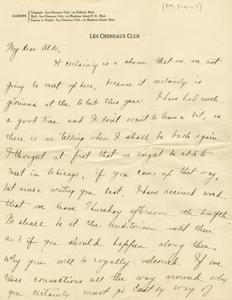 [PM. 8-14-07]
ADDRESS
Telegraph: Les Cheneaux Club, via
Mail: Les Cheneaux Club, via Mackinac Island P. O., Mich.
Express or Freight: Les Cheneaux Club, via Mackinac Island, Mich.
LES CHENEAUX CLUB
My dear Aldo,
It certainly is a shame that we are not
going to meet up here, because it certainly is
glorious at the Club this year. I have had such
a good time, and I don't want to leave a bit, as
there is no telling when I shall be back again
I thought at first that we might be able to
meet in Chicago, if you came up that way,
but since writing you last, I have received word
that we leave Thursday afternoon the
We shall be at the Auditorium until then
and if you should happen along then
why you will be royally welcomed. If we
miss connections all the way around why
you certainly must go East by way of